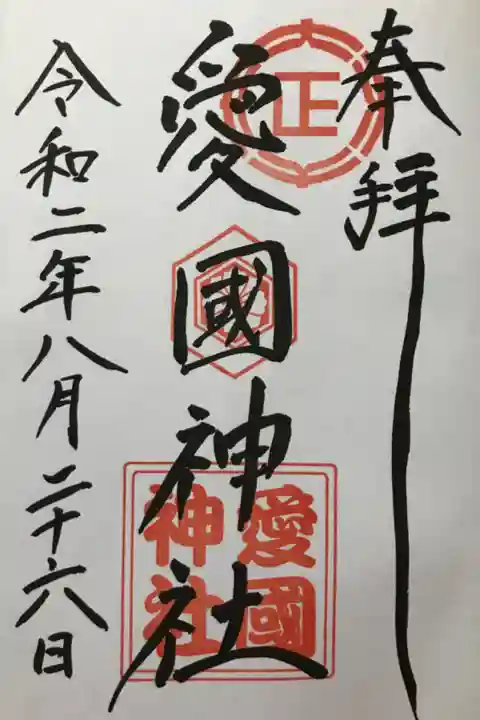 奉拝
正
愛國神社
愛國
神社
令和二年八月二十六日